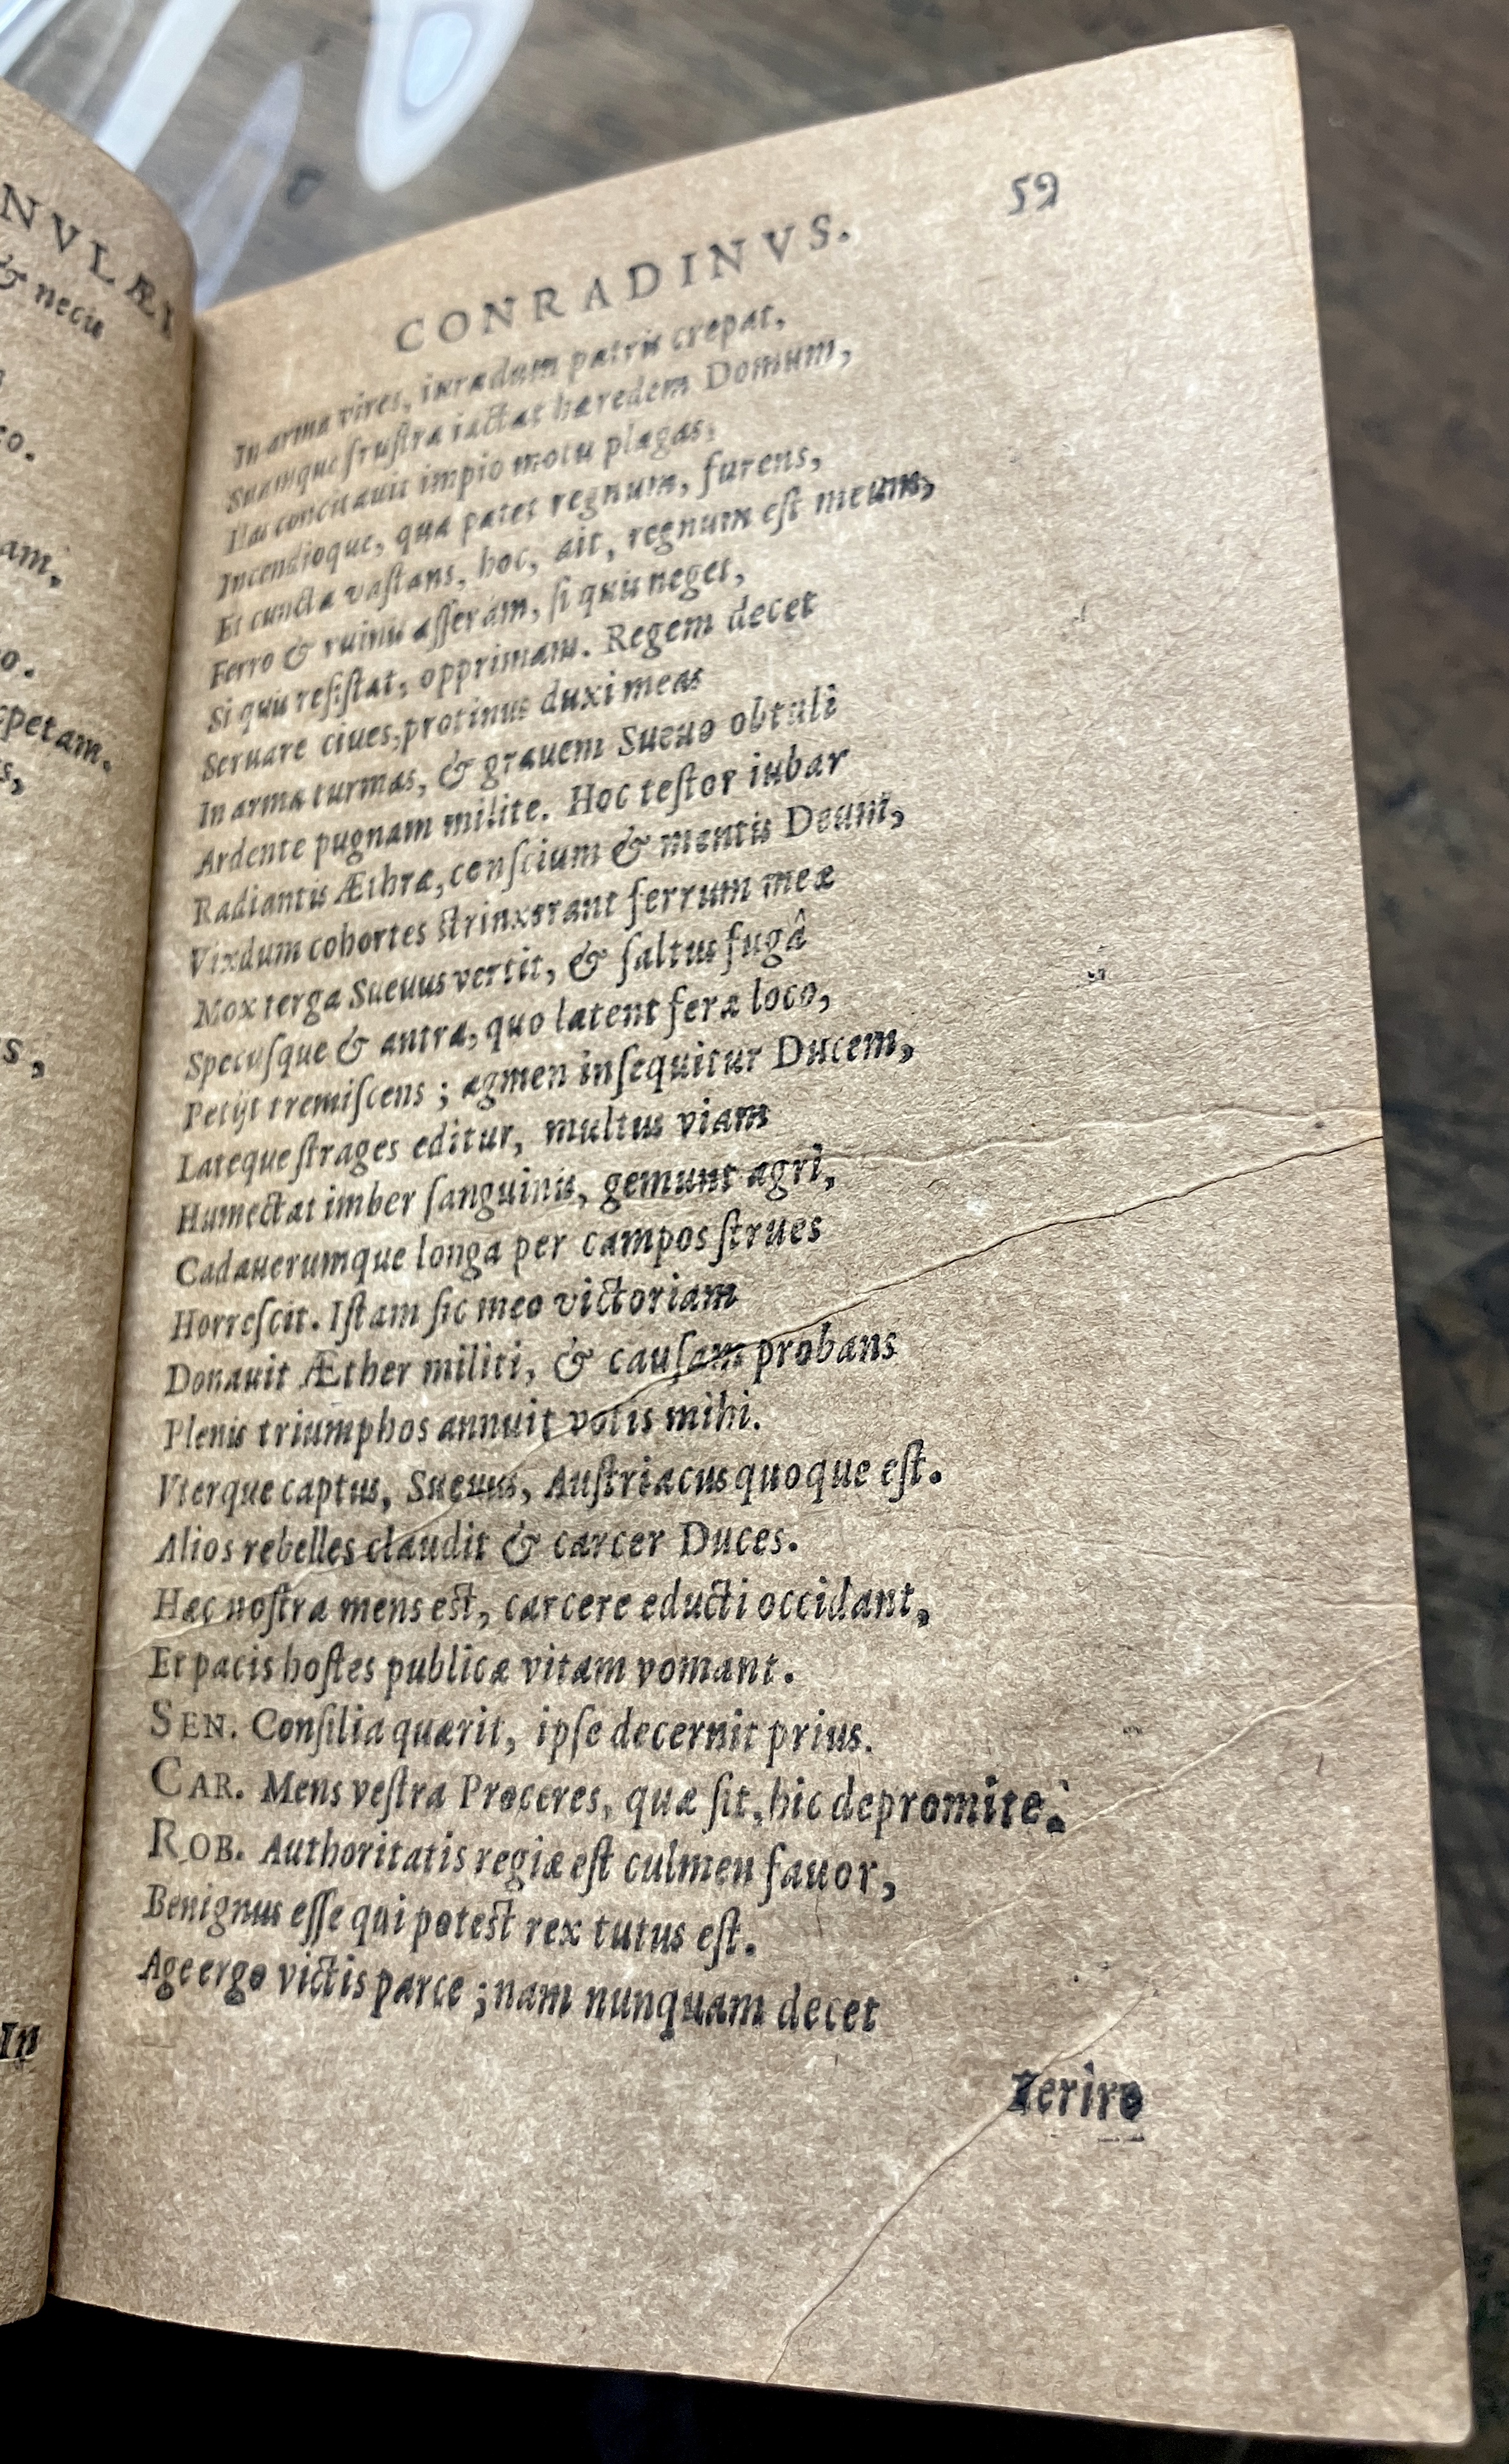 NVLÆI
& necis
co.
am,
o.
epetam.
s,
s,
In
CONRADINVS. 59
In arma vires, iura dum patris crepat,
Suamque frustra iactat hæredem Domum,
Has concitauit impio motu plagas,
Incendioque, qua patet regnum, furens,
Et cuncta vastans, hoc, ait, regnum est meum,
Ferro & ruinis asseram, si quis neget,
Si quis resistat, opprimam. Regem decet
Seruare ciues, protinus duxi meas
In arma turmas, & grauem Sueuo obtuli
Ardente pugnam milite. Hoc testor iubar
Radiantis Æthræ, conscium & mentis Deum,
Vixdum cohortes strinxerant ferrum meæ
Mox terga Sueuus vertit, & saltus fugâ
Specusque & antra, quo latent feræ loco,
Petijt tremiscens ; agmen insequitur Ducem,
Lateque strages editur, multus viam
Humectat imber sanguinis, gemunt agri,
Cadauerumque longa per campos strues
Horrescit. Istam sic meo victoriam
Donauit Æther militi, & causam probans
Plenis triumphos annuit votis mihi.
Vterque captus, Sueuus, Austriacus quoque est.
Alios rebelles claudit & carcer Duces.
Hæc nostra mens est, carcere educti occidant,
Et pacis hostes publicæ vitam vomant.
SEN. Consilia quærit, ipse decernit prius.
CAR. Mens vestra Proceres, quæ sit, hic depromite.
ROB. Authoritatis regiæ est culmen fauor,
Benignus esse qui potest rex tutus est.
Age ergo victis parce ; nam nunquam decet
Ferire